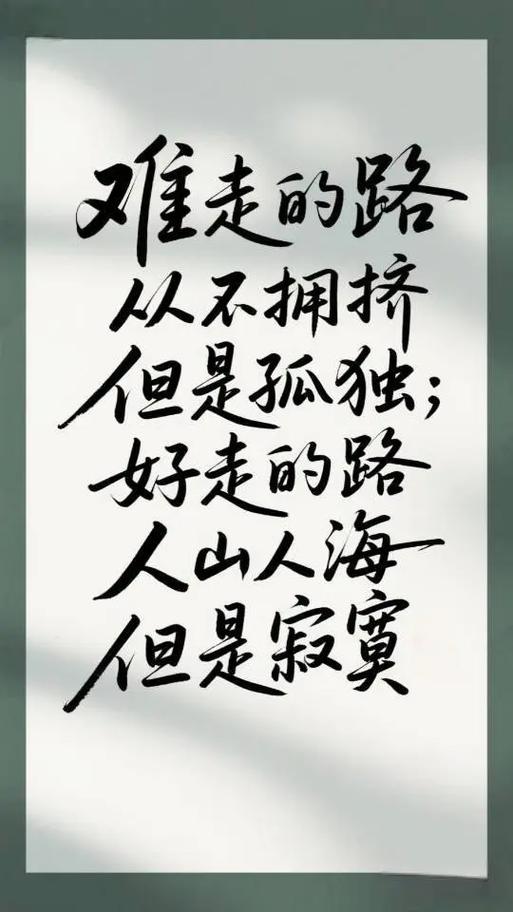 难走的路
从不拥挤
但是孤独；
好走的路
人山人海
但是寂寞